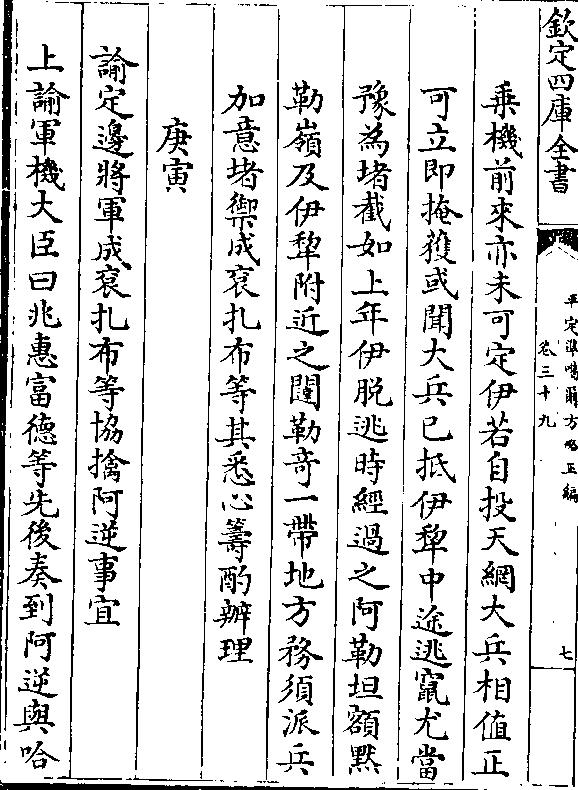 欽定四庫全書
平定準噶爾方略正編
卷三十九
七
乘機前來亦未可定伊若自投天網大兵相值正
可立即掩獲或聞大兵已抵伊犂中途逃竄尤當
豫為堵截如上年伊脱逃時經過之阿勒坦額黙
勒嶺及伊犂附近之闥勒奇一帶地方務須派兵
加意堵禦成衮扎布等其悉心籌酌辦理
庚寅
諭定邊將軍成衮扎布等協擒阿逆事宜
上諭軍機大臣曰兆惠富德等先後奏到阿逆與哈